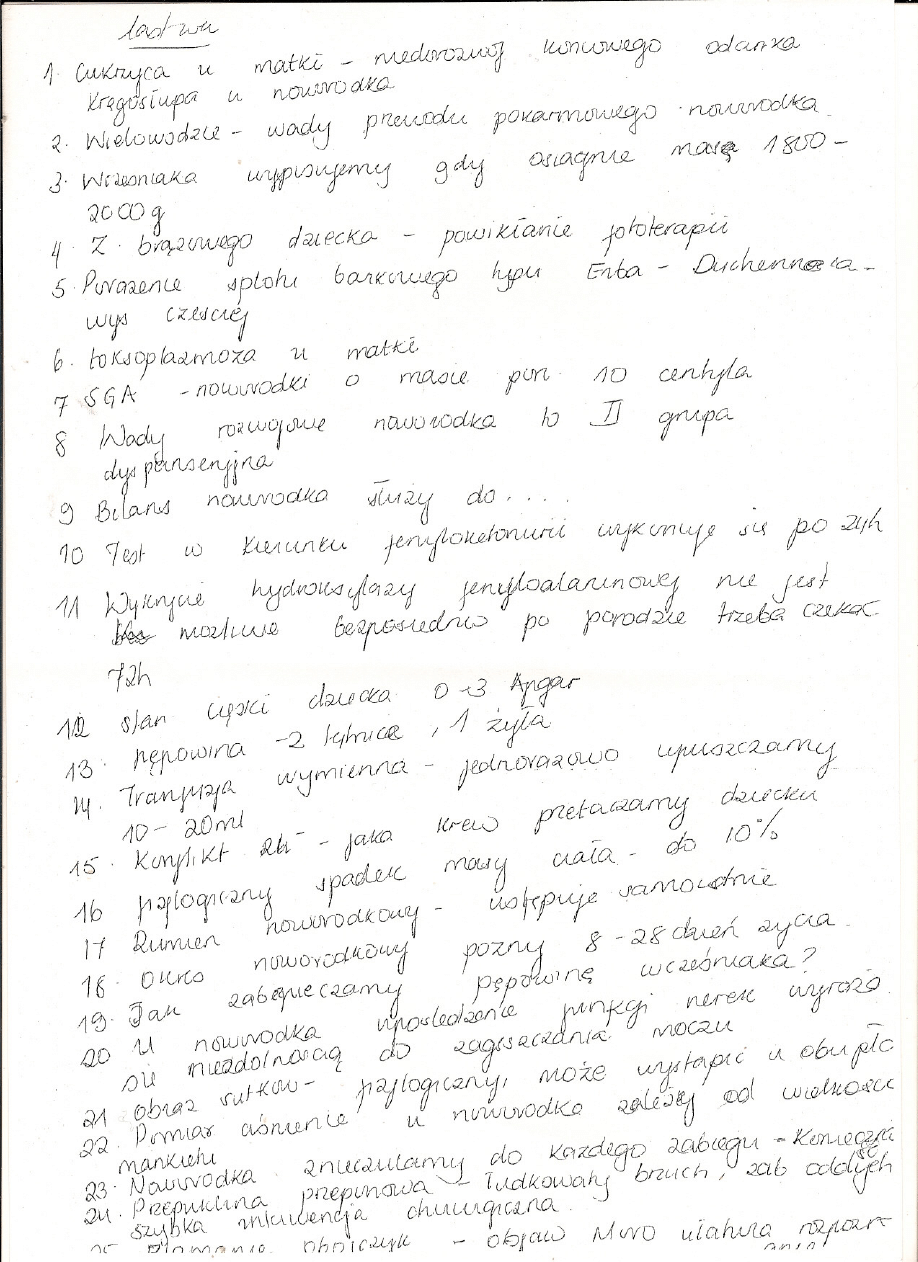 1. Cukrzyca u matki - niedorozwój końcowego odcinka
kręgosłupa u noworodka
2. Wielowodzie - wady przewodu pokarmowego noworodka.
3. Wcześniaka wypisujemy gdy osiągnie masę 1800 -
2000g
4 Z. brązowego dziecka - powikłanie fototerapii
5 Porażenie splotu barkowego typu Erba - Duchenne'a -
wys częściej
6. toksoplazmoza u matki
7 SGA - noworodki o masie pon. 10 centyla
8 Wady rozwojowe noworodka to II grupa
dyspanseryjna
9 Bilans noworodka służy do....
10 Test w kierunku fenyloketonurii wykonuje się po
11 Wykrycie hydroksylazy fenyloalaninowej nie jest
możliwe bezpośrednio po porodzie trzeba czekać
72h
12 stan ciężki dziecka 0-3 Apgar
13. pępowina - 2 tętnice, 1 żyła
14. Transfuzja wymienna - jednorazowo upuszczamy
10 - 20ml
15. Konflikt - jaką krew przetaczamy dziecku
16 fizjologiczny spadek masy ciała - do 10%
17 Rumień noworodkowy - ustępuje samoistnie
18. okres noworodkowy późny 8 - 28 dzień życia.
19. Jak zabezpieczamy pępowinę wcześniaka?
20 U noworodka upośledzenie funkcji nerek wyraża
się niezdolnością do zagęszczania moczu
21 obraz sutków - fizjologiczny, może wystąpić u obu płc
22. Pomiar ciśnienie u noworodka zależy od wielkości
mankietu
23. Noworodka znieczulamy do każdego zabiegu - Konieczne
24. Przepuklina przeponowa - łódkowaty brzuch, zab oddych
szybka interwencja chirurgiczna.
25 złamanie obojczyk - objaw Moro ułatwia rozpoz-